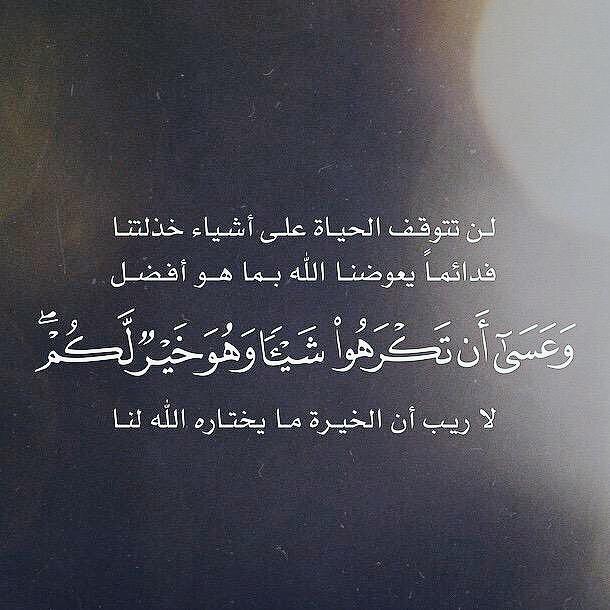 لن تتوقف الحياة على أشياء خذلتنا
فدائماً يعوضنا الله بما هو أفضل
وَعَسَىٰٓ أَن تَكْرَهُوا۟ شَيْـًٔا وَهُوَ خَيْرٌ لَّكُمْ ۖ
لا ريب أن الخيرة ما يختاره الله لنا